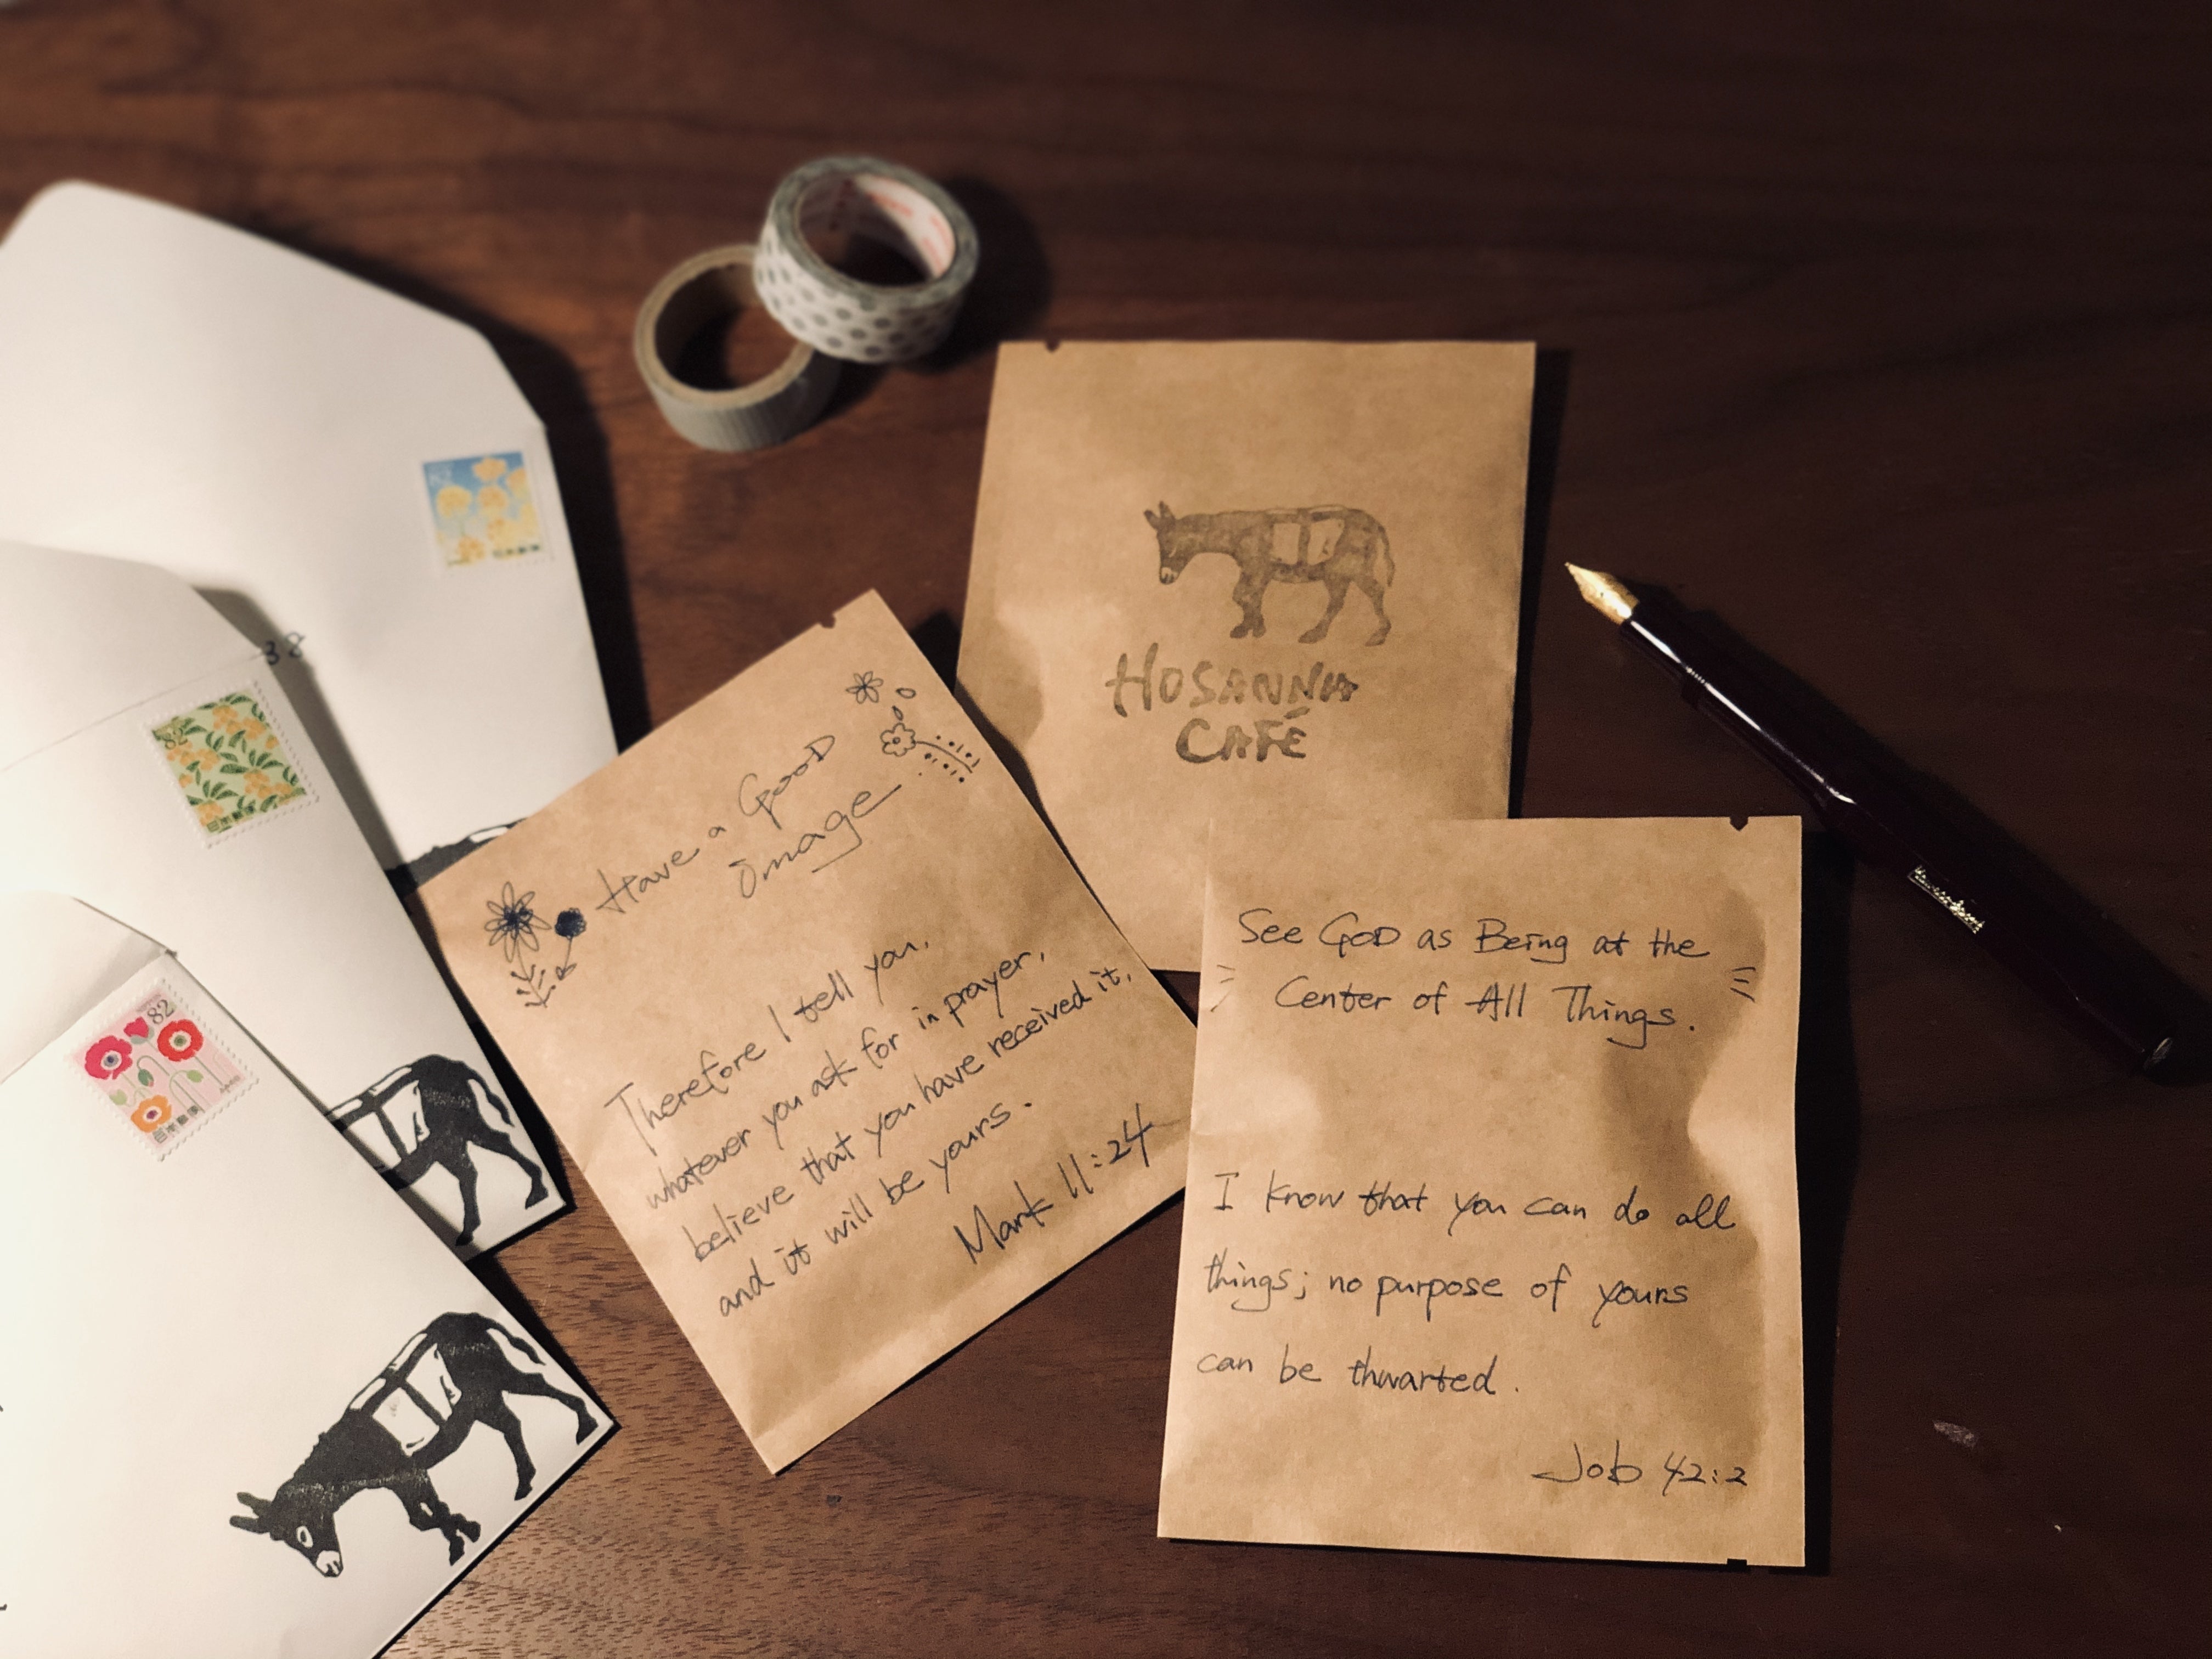 82
日本郵便
38
82
日本郵便
HOSANNA
CAFÉ
Have a GooD
image
Therefore I tell you,
whatever you ask for in prayer,
believe that you have received it,
and it will be yours.
Mark 11:24
See GOD as Being at the
Center of All Things.
I know that you can do all
things; no purpose of yours
can be thwarted.
Job 42:2